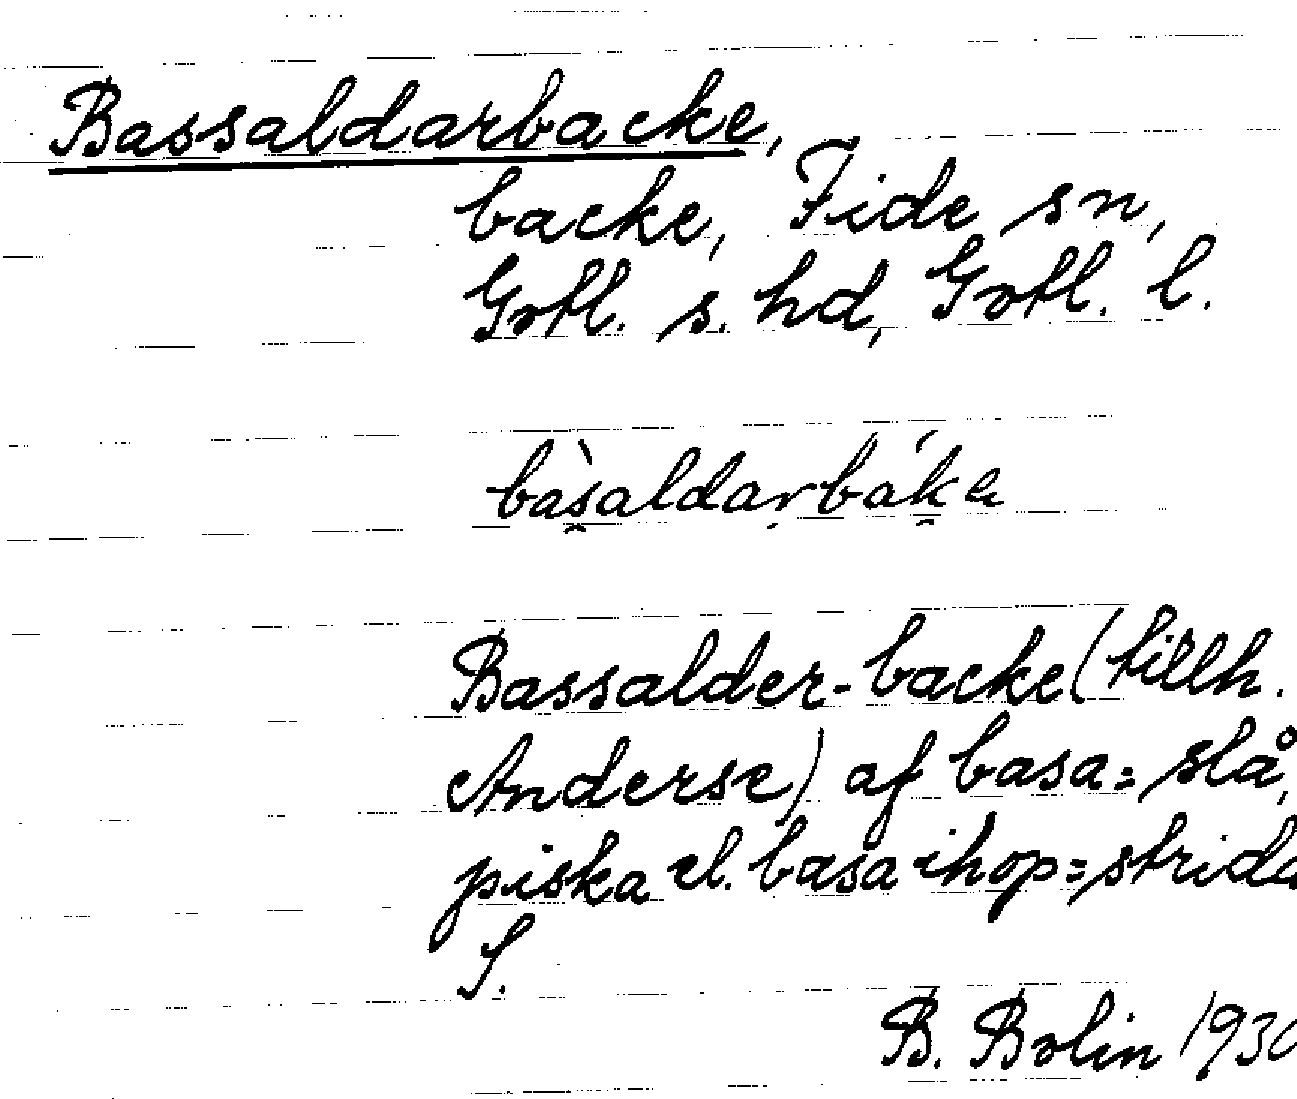 Bassaldarbacke,
backe, Fide sn,
Gotl. s. hd, Gotl. l.
bàs̯aldaṛbák̯a
Bassalder-backe (tillh.
Anderse) af basa = slå,
piska el. basa ihop = strida
S.
B. Bolin 1930